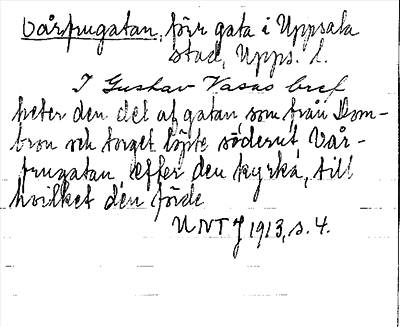 Vårfrugatan, förr gata i Uppsala
stad, Upps. l.
I Gustav Vasas bref
heter den del af gatan, som från Dom-
bron och torget löpte söderut, Vår-
frugatan, efter den kyrka, till
hvilket den förde
UNTJ 1913, s. 4.